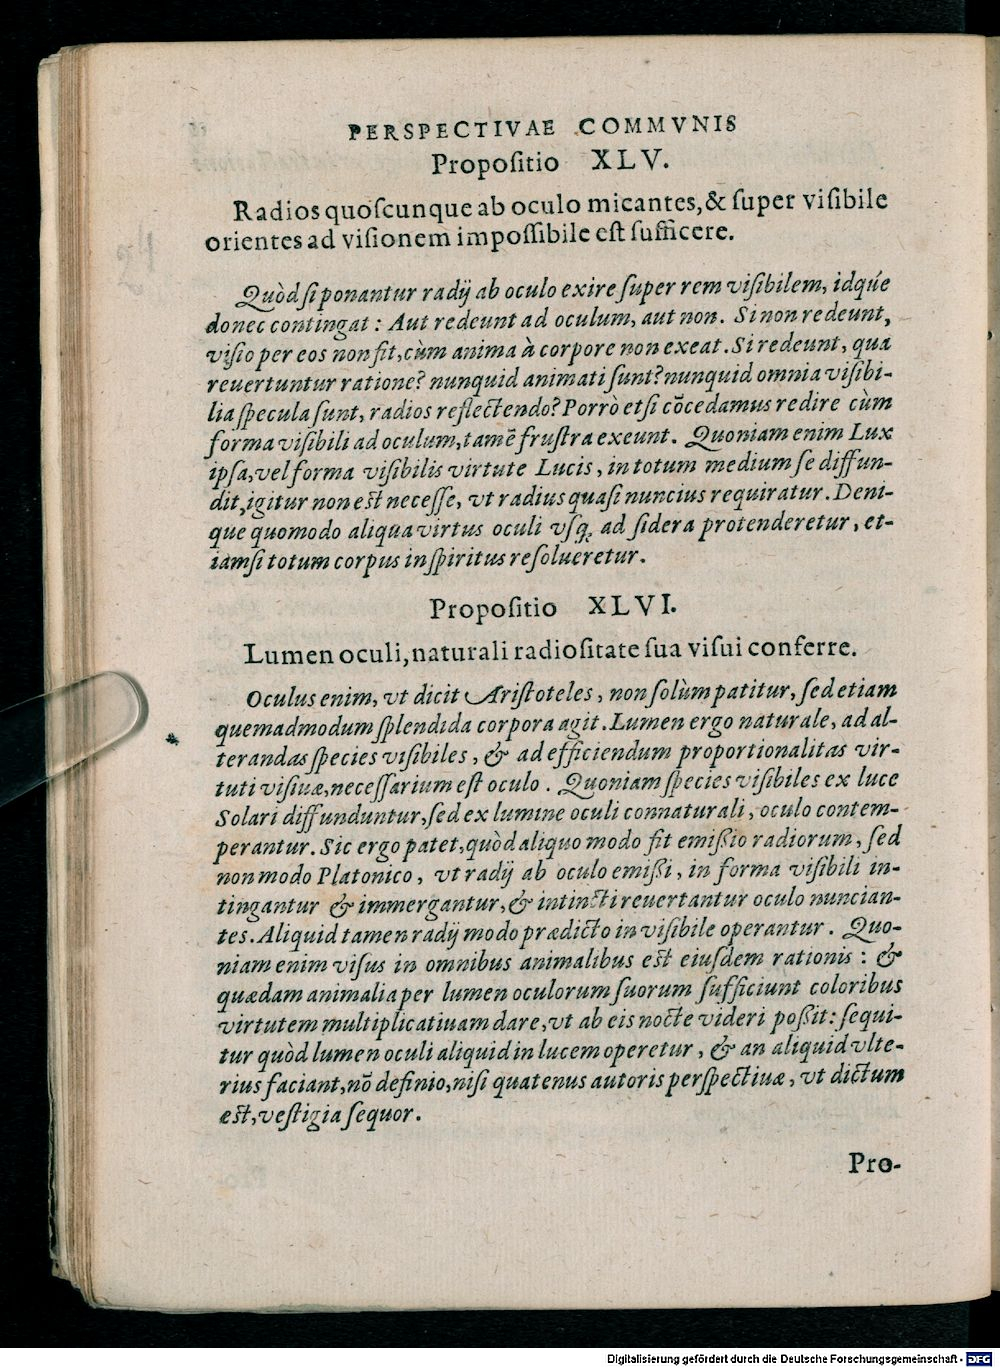 PERSPECTIVAE COMMVNIS
Propoſitio XLV.
Radios quoſcunque ab oculo micantes, & ſuper viſibile
orientes ad viſionem impoſſibile eſt ſufficere.
Quòd ſi ponantur radij ab oculo exire ſuper rem viſibilem, idq́ue
donec contingat : Aut redeunt ad oculum, aut non. Si non redeunt,
viſio per eos non fit, cùm anima à corpore non exeat. Si redeunt, qua
reuertuntur ratione? nunquid animati ſunt? nunquid omnia viſibi-
lia ſpecula ſunt, radios reflectendo? Porrò etſi cōcedamus redire cùm
forma viſibili ad oculum, tamē fruſtra exeunt. Quoniam enim Lux
ipſa, vel forma viſibilis virtute Lucis, in totum medium ſe diffun-
dit, igitur non eſt neceſſe, vt radius quaſi nuncius requiratur. Deni-
que quomodo aliqua virtus oculi vſq; ad ſidera protenderetur, et-
iamſi totum corpus in ſpiritus reſolueretur.
Propoſitio XLVI.
Lumen oculi, naturali radioſitate ſua viſui conferre.
Oculus enim, vt dicit Ariſtoteles, non ſolùm patitur, ſed etiam
quemadmodum ſplendida corpora agit. Lumen ergo naturale, ad al-
terandas ſpecies viſibiles, & ad efficiendum proportionalitas vir-
tuti viſiuæ, neceſſarium eſt oculo. Quoniam ſpecies viſibiles ex luce
Solari diffunduntur, ſed ex lumine oculi connaturali, oculo contem-
perantur. Sic ergo patet, quòd aliquo modo fit emiſſio radiorum, ſed
non modo Platonico, vt radij ab oculo emiſſi, in forma viſibili in-
tingantur & immergantur, & intincti reuertantur oculo nuncian-
tes. Aliquid tamen radij modo prædicto in viſibile operantur. Quo-
niam enim viſus in omnibus animalibus eſt eiuſdem rationis : &
quædam animalia per lumen oculorum ſuorum ſufficiunt coloribus
virtutem multiplicatiuam dare, vt ab eis nocte videri poſſit: ſequi-
tur quòd lumen oculi aliquid in lucem operetur, & an aliquid vlte-
rius faciant, nō definio, niſi quatenus autoris perſpectiuæ, vt dictum
eſt, veſtigia ſequor.
Pro-
Digitalisierung gefördert durch die Deutsche Forschungsgemeinschaft - DFG